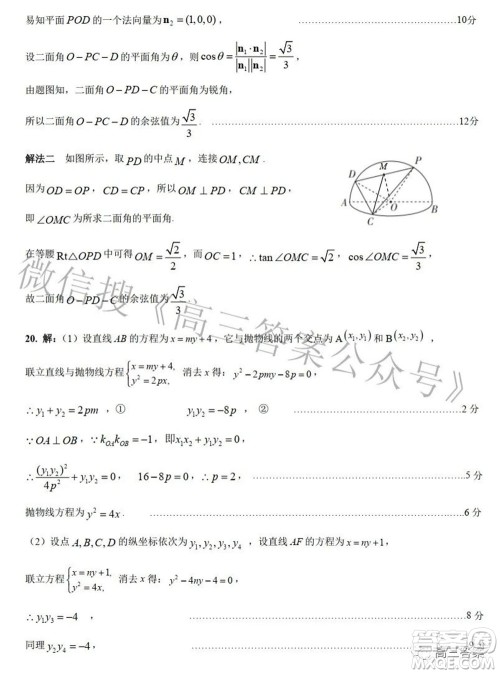 易知平面POD的一个法向量为n₂=(1,0,0)， 10分
设二面角O-PC-D的平面角为θ，则cosθ=|n₁·n₂|/(|n₁||n₂|)=√3/3，
由题图知，二面角O-PD-C的平面角为锐角，
所以二面角O-PC-D的余弦值为√3/3． 12分
解法二 如图所示，取PD的中点M，连接OM,CM，
因为OD=OP，CD=CP，所以OM⊥PD，CM⊥PD，
即∠OMC为所求二面角的平面角.
在等腰Rt△OPD中可得OM=√2/2，而OC=1，∴tan∠OMC=√2，cos∠OMC=√3/3，
故二面角O-PD-C的余弦值为√3/3
D M P A O B C
20. 解：（1）设直线AB的方程为x=my+4，它与抛物线的两个交点为A(x₁,y₁)和B(x₂,y₂)，
联立直线与抛物线方程{x=my+4, y²=2px, 消去x得：y²-2pmy-8p=0，
∴y₁+y₂=2pm，① y₁y₂=-8p，② 2分
∵OA⊥OB，∵k_OA k_OB=-1，即x₁x₂+y₁y₂=0，
∴(y₁y₂)²/4p²+y₁y₂=0，16-8p=0，∴p=2， 5分
抛物线方程为y²=4x． 6分
（2）设点A,B,C,D的纵坐标依次为y₁,y₂,y₃,y₄，设直线AF的方程为x=ny+1，
联立方程{x=ny+1, y²=4x, 消去x得：y²-4ny-4=0，
∴y₁y₃=-4， 8分
同理y₂y₄=-4，
微信搜《高三答案公众号》
高三答案